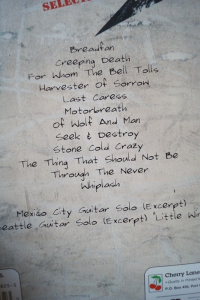 SELECT
Breadfan
Creeping Death
For Whom The Bell Tolls
Harvester Of Sorrow
Last Caress
Motorbreath
Of Wolf And Man
Seek & Destroy
Stone Cold Crazy
The Thing That Should Not Be
Through The Never
Whiplash
Mexico City Guitar Solo (Excerpt)
Seattle Guitar Solo (Excerpt) 'Little Win
Cherry Lane